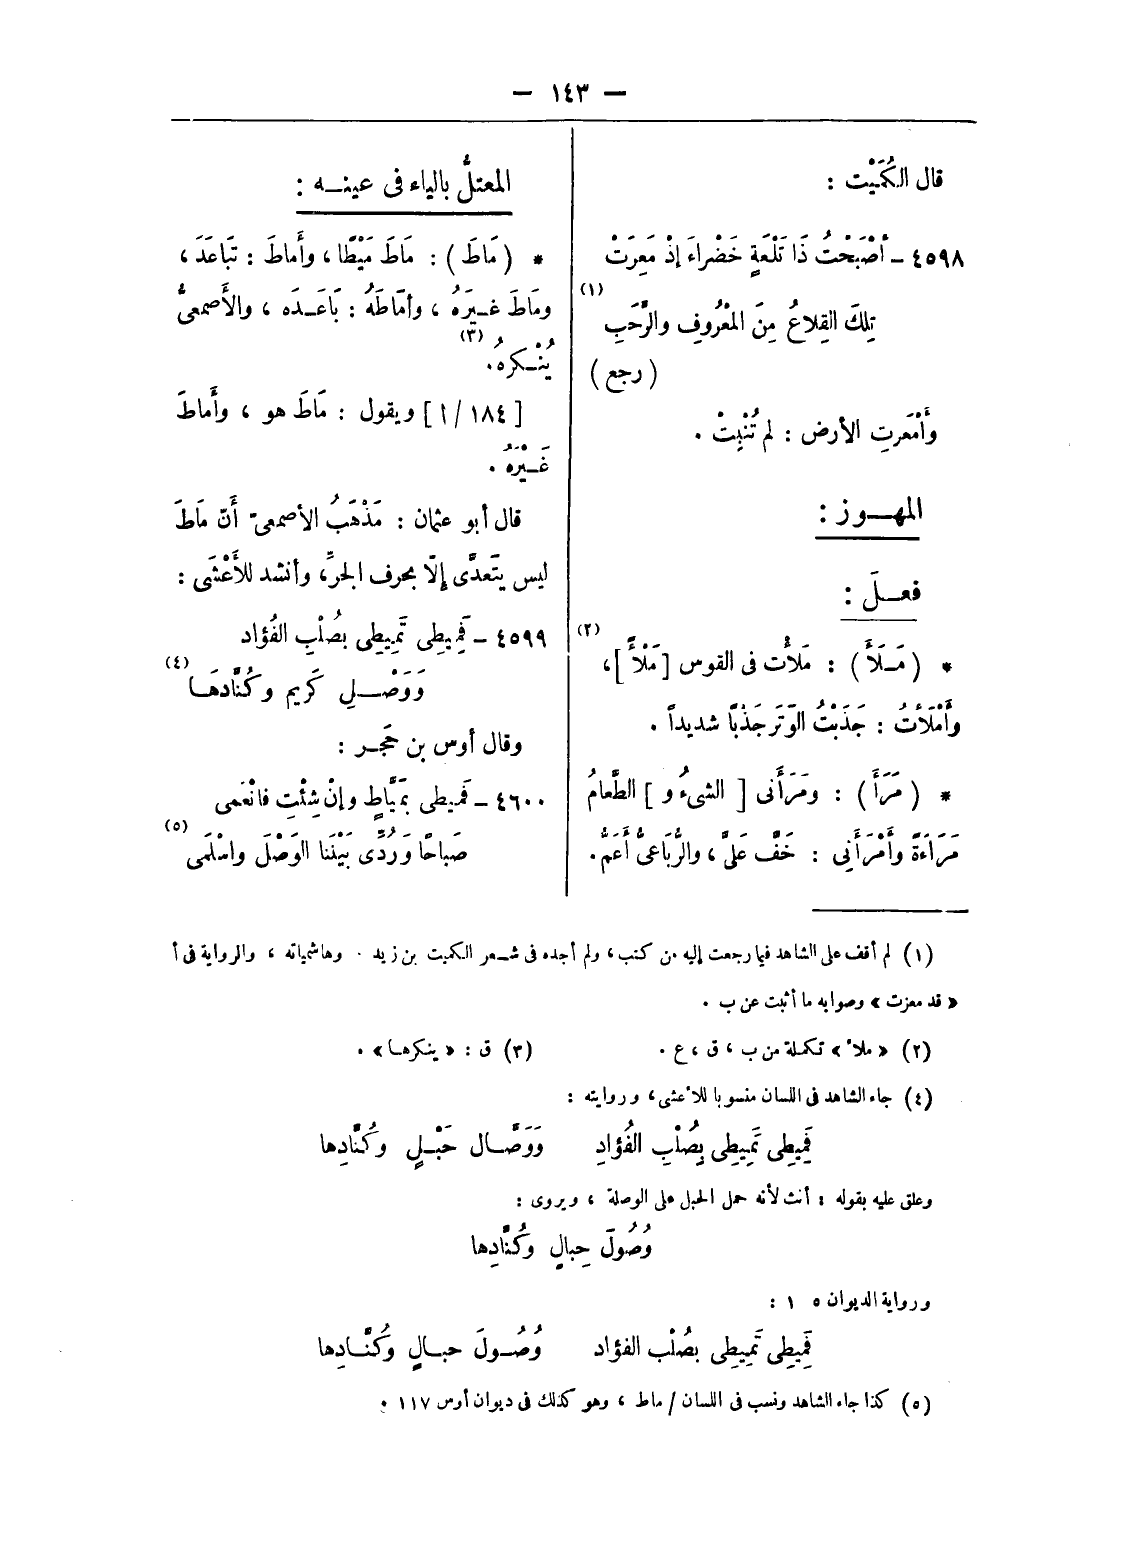 — ١٤٣ —
قال الكُمَيْت :
٤٥٩٨ ــ أَصْبَحْتُ ذَا تَلْعَةٍ خَضْراءَ إذْ مَعِرَتْ
تِلكَ القِلاعُ مِنَ المَعْرُوفِ والرَّحَبِ (١)
( رجع )
وَأَمْعَرتِ الأرض : لم تُنْبِتْ .
المهــوز :
فعــلَ :
* ( مَــلَأَ ) : مَلأْت فى القوس [ مَلْأً ] (٢) ،
وَأَمْلَأْتُ : جَذَبْتُ الوَتَر جَذْبًا شديداً .
* ( مَرَأَ ) : ومَرَأَنى [ الشىءُ و ] الطَّعامُ
مَرَاءَةً وأَمْرَأَنِى : خَفَّ عَلىَّ ، والرُّبَاعىُّ أَعَمُّ .
المعتلُّ بالياء فى عينــه :
* ( مَاطَ ) : مَاطَ مَيْطًا ، وأَماطَ : تَبَاعَدَ ،
ومَاطَ غــيرَهُ ، وأمَاطَهُ : بَاعَــدَه ، والأَصمعىُّ
يُنْــكرهُ (٣) .
[ ١٨٤ / ١ ] ويقول : مَاطَ هو ، وأَماطَ
غَــيْرَهُ .
قال أبو عثمان : مَذْهَبُ الأصمعىّ أَنّ مَاطَ
ليس يتَعدَّى إلّا بحرف الجرِّ ، وأنشد للأَعْشَى :
٤٥٩٩ ــ فَمِيطِى تَمِيطِى بصُلْبِ الفُؤاد
وَوَصْــــلِ كَرِيم وكُنَّادَهَــا (٤)
وقال أوس بن حَجَــر :
٤٦٠٠ ــ فَميطى بمَيَّاطٍ وإنْ شِئْتِ فانْعَمى
صَباحًا وَرُدِّى بَيْنَنا الوَصْلَ واسْلَمَى (٥)
(١) لم أقف على الشاهد فيما رجعت إليه من كتب ، ولم أجده فى شــعر الكميت بن زيد . وهاشمياته ، والرواية فى أ
« قد معزت » وصوابه ما أثبت عن ب .
(٢) « ملأ » تكملة من ب ، ق ، ع . (٣) ق : « ينكرهــا » .
(٤) جاء الشاهد فى اللسان منسوبا للأعشى ، وروايته :
فَمِيطِى تَمِيطِى بِصُلْبِ الفُؤادِ وَوَصَّــال حَبْــلٍ وكُنَّادِها
وعلق عليه بقوله : أنث لأنه حمل الحبل على الوصلة ، ويروى :
وُصُولَ حِبالٍ وكُنَّادِها
ورواية الديوان ٥ ١ :
فَمِيطِى تَمِيطِى بصُلْب الفؤاد وُصُــولَ حبــالٍ وكُنَّــادِها
(٥) كذا جاء الشاهد ونسب فى اللسان / ماط ، وهو كذلك فى ديوان أوس ١١٧ .